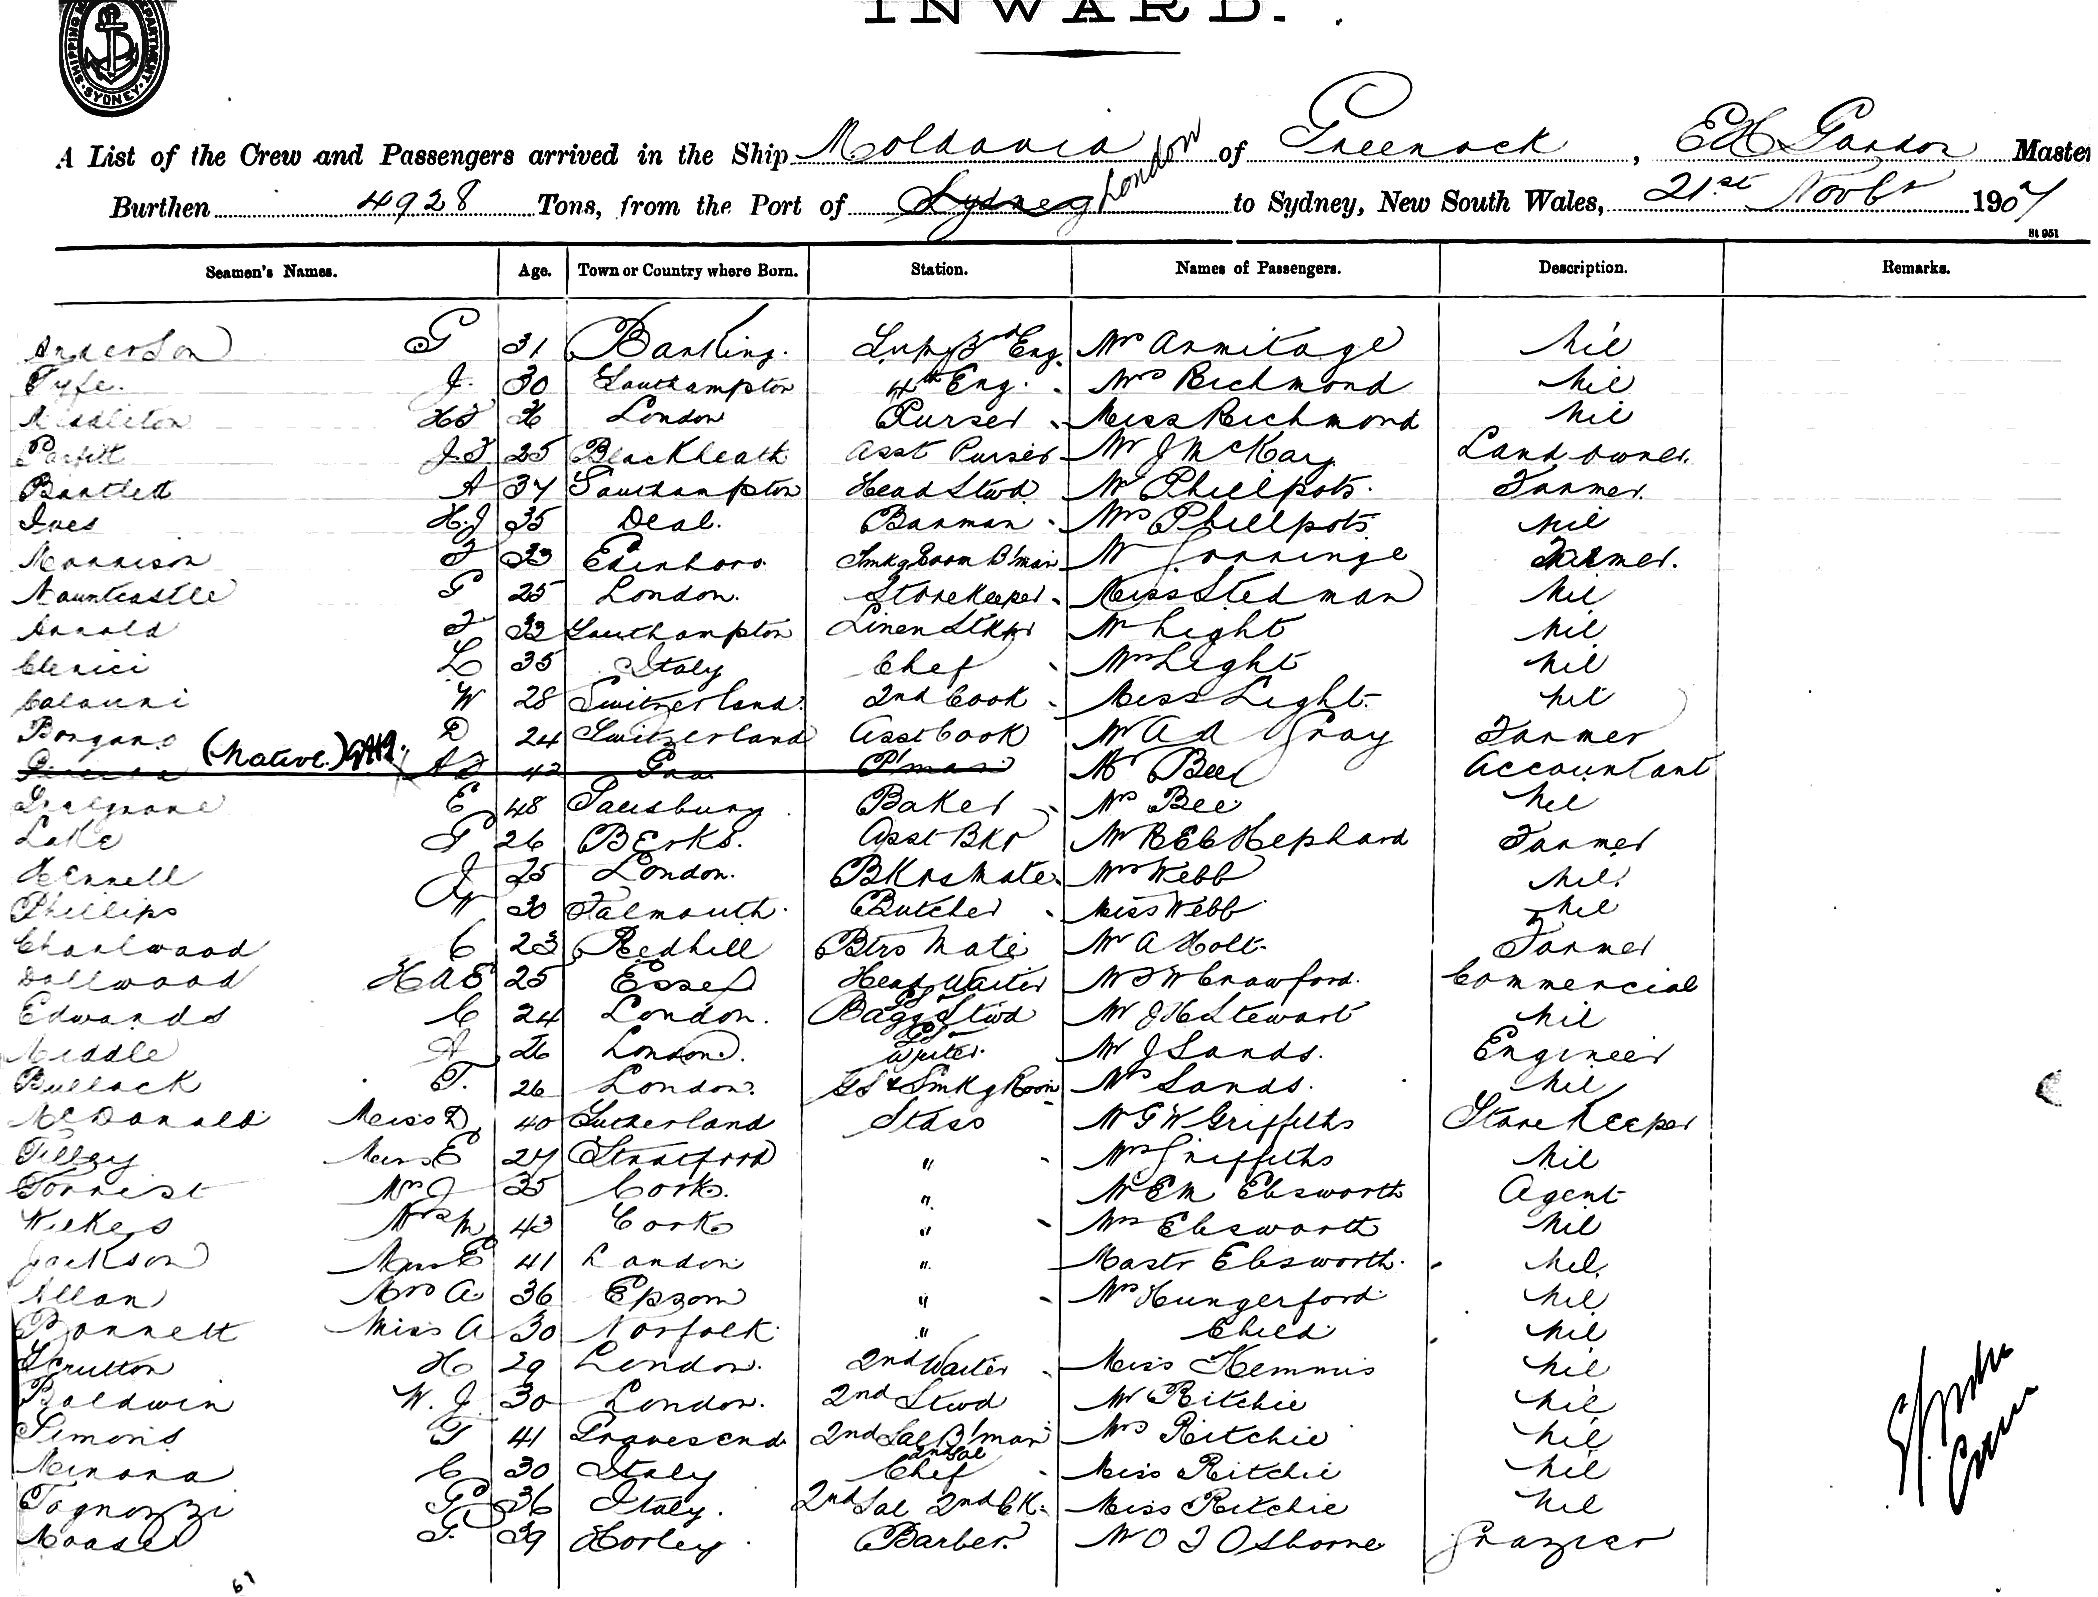 SHIPPING DEPARTMENT SYDNEY
INWARD.
A List of the Crew and Passengers arrived in the Ship Moldavia of Greenock, E H Gordon Master
Burthen 4928 Tons, from the Port of Sydney London to Sydney, New South Wales, 21st Novbr 1907
St 951
Seamen's Names. Age. Town or Country where Born. Station. Names of Passengers. Description. Remarks.
Anderson G 31 Barking. Supy 3rd Eng. Mrs Armitage Nil
Fyfe. J. 30 Southampton 4th Eng. Mrs Richmond Nil
Middleton H S 36 London Purser Miss Richmond Nil
Parfitt J S 25 Blackheath Asst Purser Mr J McKay Land owner.
Bartlett A 37 Southampton Head Stwd Mr Phillpots. Farmer.
Ives H.J 35 Deal. Barman Mrs Phillpots Nil
Morrison J 33 Edinboro. Smkg Room B'man Mr Jorringe Farmer.
Mountcastle G 25 London. Storekeeper Miss Stedman Nil
Arnold F 33 Southampton Linen Stkpr Mr Light Nil
Clerici L 35 Italy Chef Mrs Light Nil
W 28 Switzerland. 2nd Cook Miss Light. Nil
Borgano D 24 Switzerland Asst Cook Mr A A Gray Farmer
(Native.) 42 Goa P'man Mr Bee Accountant
E 48 Salisbury Baker Mrs Bee Nil
Lake G 26 Berks. Asst Bkr Mr R E C Hephard Farmer
Kennell J 25 London. Bkrs Mate Mrs Webb Nil.
Phillips W 30 Falmouth. Butcher Miss Webb Nil
Charlwood C 23 Redhill Btrs Mate Mr A Holt. Farmer
Dollwood H A E 25 Essex Head Waiter Mr F W Crawford. Commercial
Edwards C 24 London. Bagg Stwd Mr J H Stewart Nil
Middle A 26 London. Writer. Mr J Sands. Engineer
Bullock T. 26 London. G S & Smkg Room Mrs Sands. Nil
McDonald Miss D. 40 Sutherland Stdss Mr G W Griffiths Store Keeper
Tilley Miss E 27 Stratford " Mrs Griffiths Nil
Forrest Mrs J 35 Cork. " Mr E M Ebsworth Agent
Wilkes Mrs M 43 Cork " Mrs Ebsworth Nil
Jackson Miss E 41 London " Mastr Ebsworth. Nil.
Allan Mrs A 36 Epsom " Mrs Hungerford Nil
Bonnett Miss A 30 Norfolk " Child Nil
Scrutton H 29 London. 2nd Waiter Miss Kemmis Nil
Baldwin W. J. 30 London. 2nd Stwd Mr Ritchie Nil
Simons G 41 Gravesend 2nd Sal B'man Mrs Ritchie Nil
Minona C 30 Italy 2nd Sal Chef Miss Ritchie Nil
Tognozzi G 36 Italy. 2nd Sal 2nd Ck. Miss Ritchie Nil
F. 39 Horley Barber. Mr O F Osborne Grazier
61